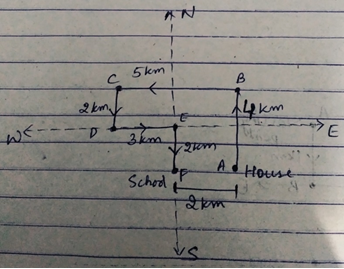 N
C
5km
B
2km
4km
E
W
D
3km
2km
E
School
F
A
House
2km
S